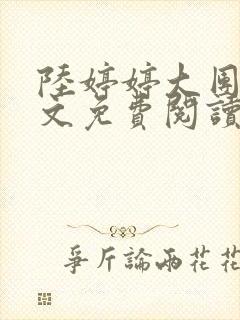 陸婷婷大圍
文免費閱讀
爭斤論兩花花